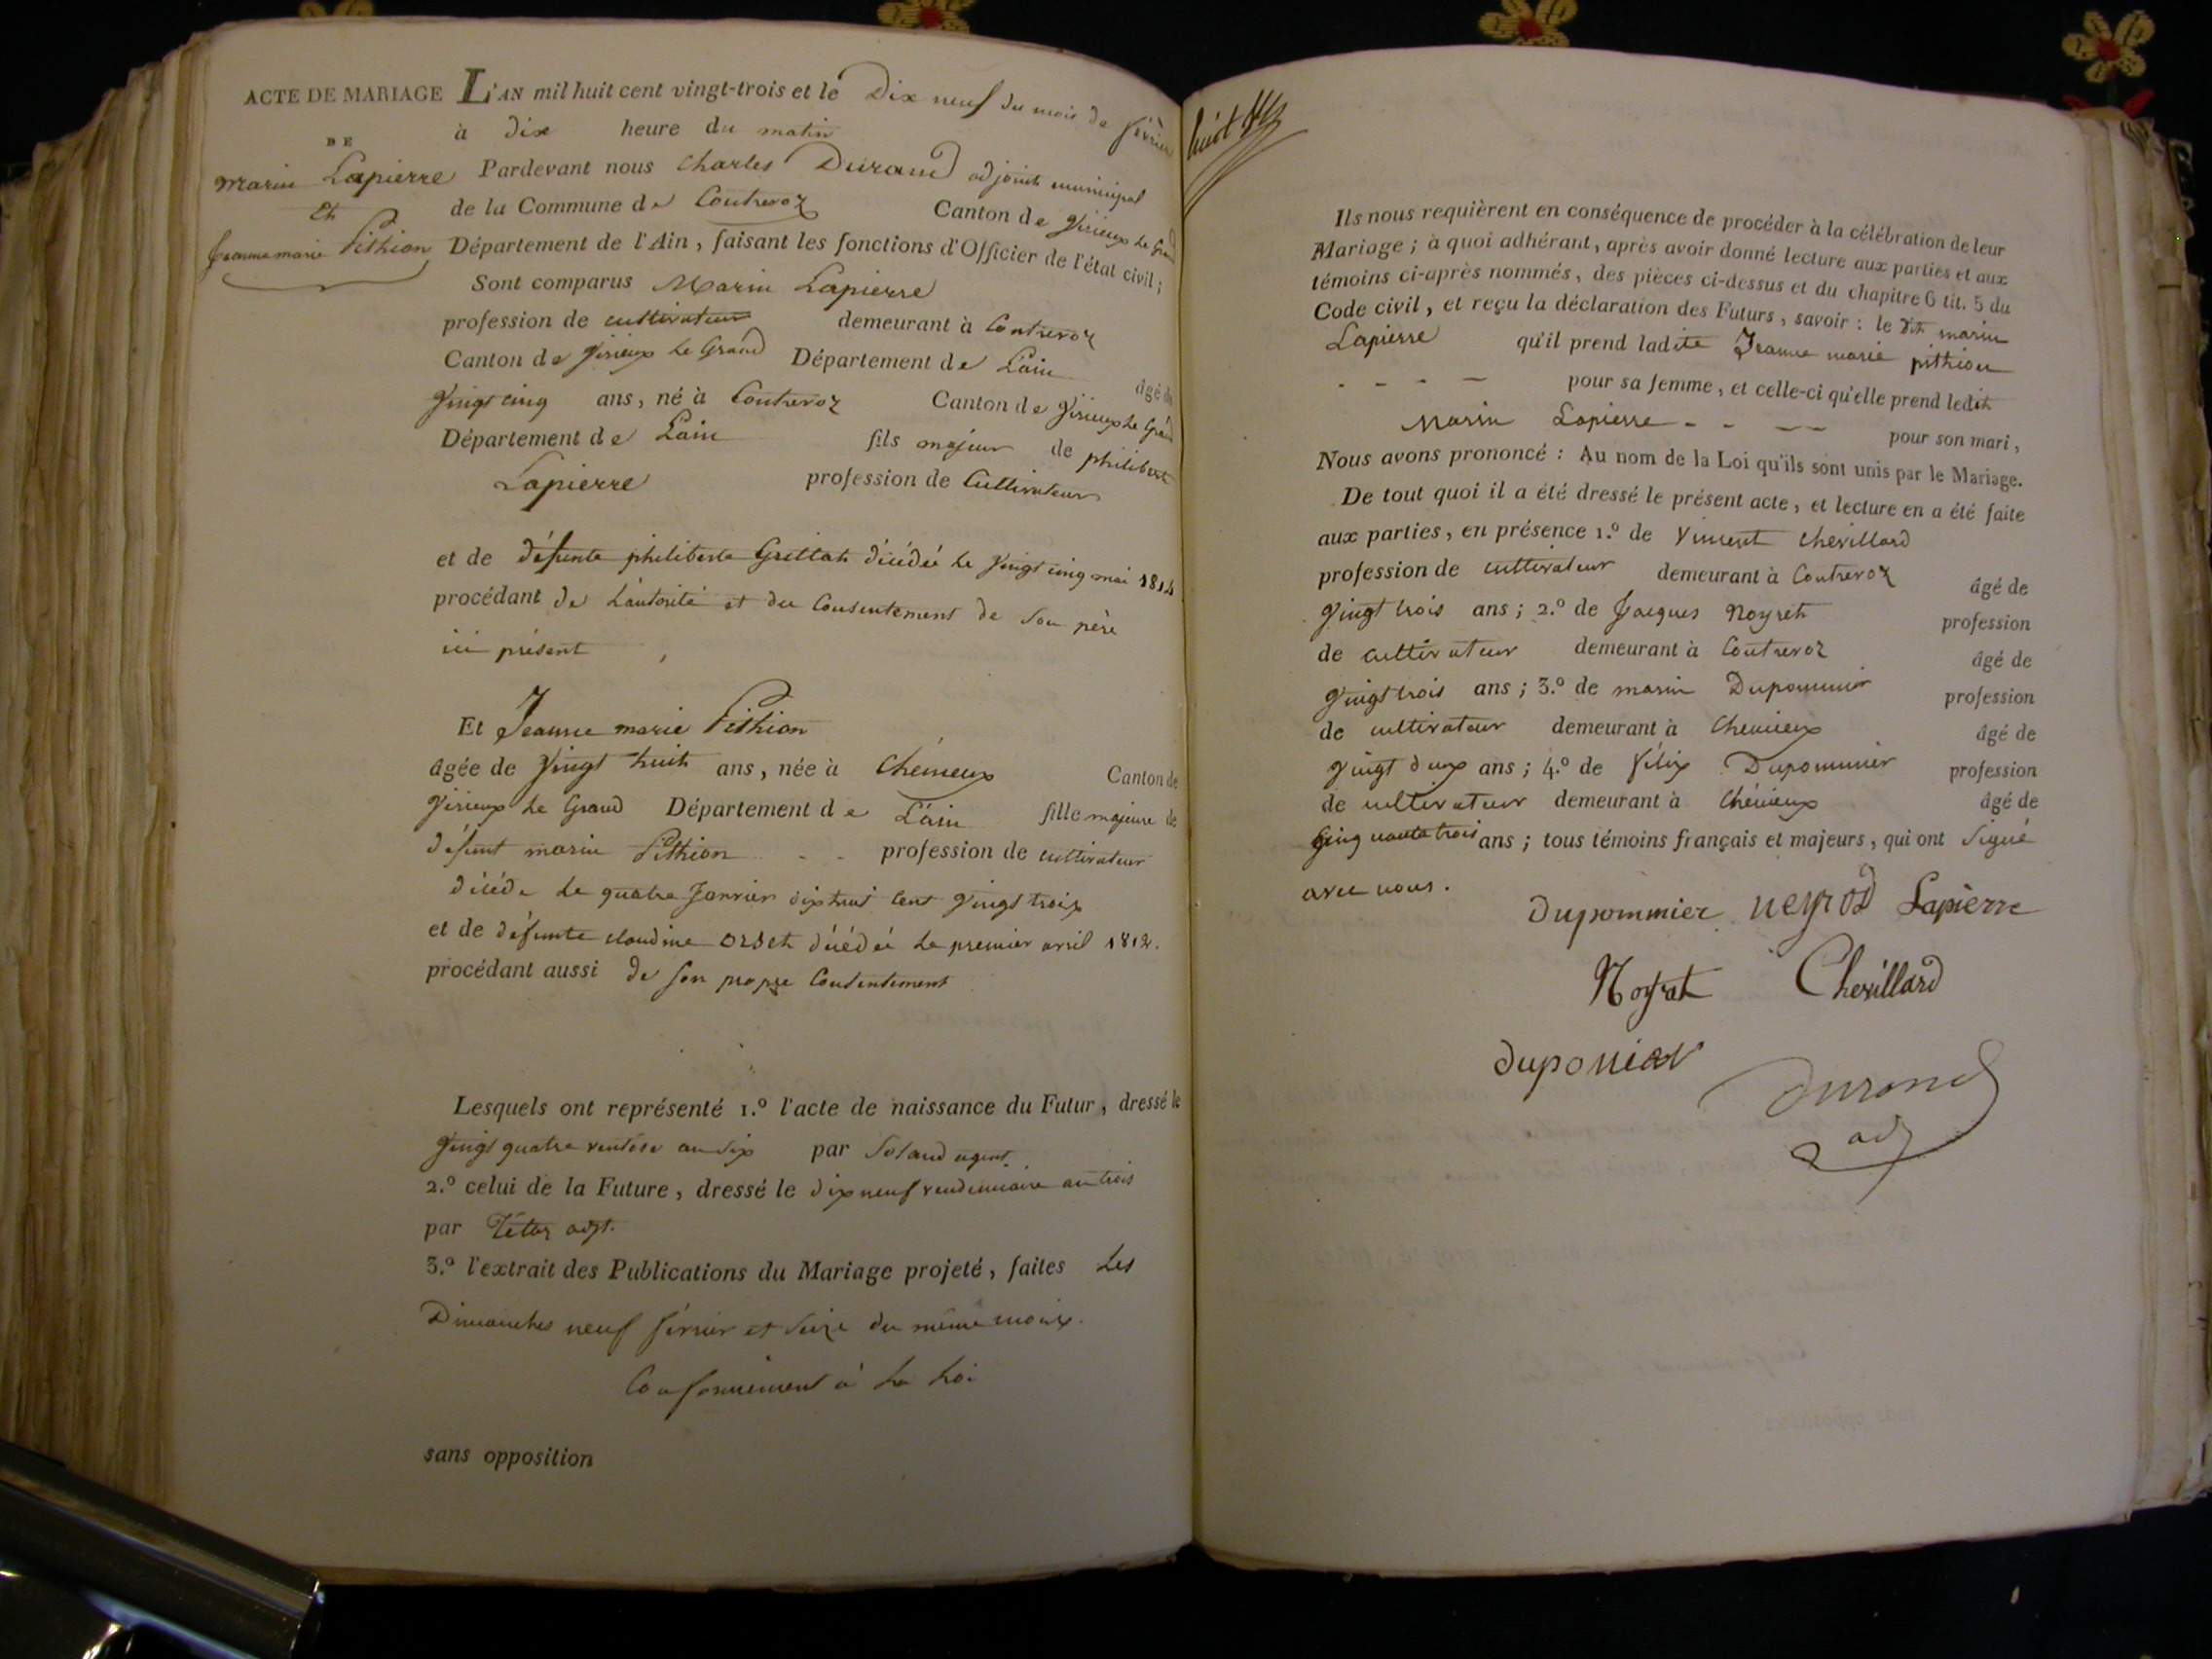 ACTE DE MARIAGE L'AN mil huit cent vingt-trois et le Dix neuf du mois de février
DE
à dix heure du matin
Marin Lapierre
Et
Jeanne marie Pithion
Pardevant nous Charles Durand adjoint municipal
de la Commune de Contrevoz Canton de Virieux Le Grand
Département de l'Ain, faisant les fonctions d'Officier de l'état civil;
Sont comparus Marin Lapierre
profession de cultivateur demeurant à Contrevoz
Canton de Virieux Le Grand Département de L'ain âgé de
Vingt cinq ans, né à Contrevoz Canton de Virieux Le Grand
Département de Lain fils majeur de philibert
Lapierre profession de Cultivateur
et de défunte philiberte décédée le Vingt cinq mai 1814
procédant de L'autorité et du Consentement de Son père
ici présent
Et Jeanne marie Pithion
âgée de Vingt huit ans, née à Chémieux Canton de
Virieux Le Grand Département de L'ain fille majeure de
défunt marin Pithion profession de cultivateur
décédé Le quatre Janvier dix huit cent Vingt trois
et de défunte claudine décédée Le premier avril 1812.
procédant aussi de son propre Consentement
Lesquels ont représenté 1.º l'acte de naissance du Futur, dressé le
Vingt quatre ventôse an six par agent.
2.º celui de la Future, dressé le dix neuf vendémiaire an trois
par
3.º l'extrait des Publications du Mariage projeté, faites Les
Dimanches neuf février et Seize du même mois.
Conformément à La Loi
sans opposition
Ils nous requièrent en conséquence de procéder à la célébration de leur
Mariage; à quoi adhérant, après avoir donné lecture aux parties et aux
témoins ci-après nommés, des pièces ci-dessus et du chapitre 6 tit. 5 du
Code civil, et reçu la déclaration des Futurs, savoir: le dit marin
Lapierre qu'il prend ladite Jeanne marie pithion
- - - - pour sa femme, et celle-ci qu'elle prend ledit
Marin Lapierre - - - - pour son mari,
Nous avons prononcé: Au nom de la Loi qu'ils sont unis par le Mariage.
De tout quoi il a été dressé le présent acte, et lecture en a été faite
aux parties, en présence 1.º de Vincent Chevillard
profession de cultivateur demeurant à Contrevoz âgé de
Vingt trois ans; 2.º de Jacques Noyret profession
de cultivateur demeurant à Contrevoz âgé de
Vingt trois ans; 3.º de marin Dupommier profession
de cultivateur demeurant à Chémieux âgé de
Vingt deux ans; 4.º de Félix Dupommier profession
de cultivateur demeurant à Chémieux âgé de
Cinquante trois ans; tous témoins français et majeurs, qui ont Signé
avec nous.
Dupommier neyrod Lapierre
Noyret Chevillard
duponier
durand
adj